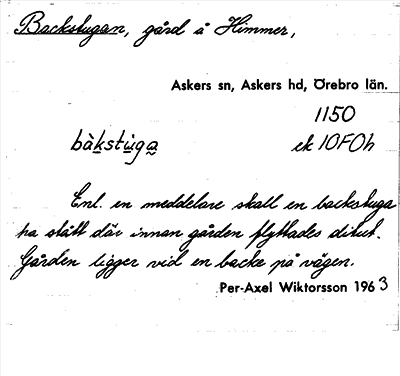 Backstugan, gård å Himmer,
Askers sn, Askers hd, Örebro län.
1150
bàkstu̠ga̰ ek 10F0h
Enl. en meddelare skall en backstuga
ha stått där innan gården flyttades ditut.
Gården ligger vid en backe på vägen.
Per-Axel Wiktorsson 1963